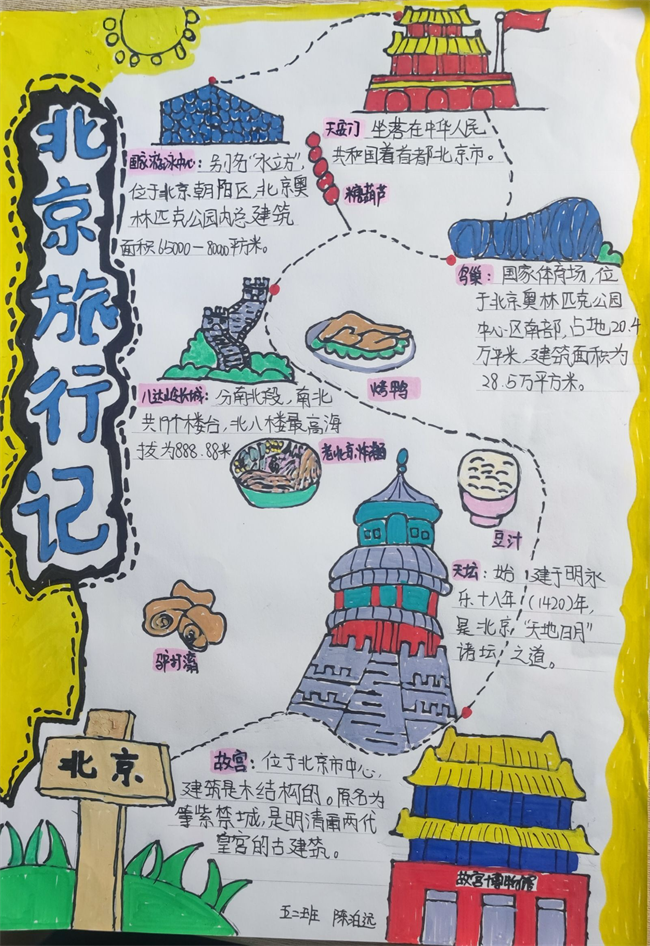 北京旅行记
天安门
坐落在中华人民
共和国着首都北京市。
国家游泳中心：别名“水立方”，
位于北京朝阳区，北京奥
林匹克公园内总建筑
面积65000－8000平方米。
糖葫芦
鸟巢：国家体育场，位
于北京奥林匹克公园
中心区南部，占地20.4
万平米，建筑面积为
28.5万平方米。
烤鸭
八达岭长城：分南北段，南北
共19个楼台，北八楼最高海
拔为888.88米
老北京炸酱面
豆汁
天坛：始建于明永
乐十八年，(1420)年，
是北京“天地日月”
诸坛之道。
驴打滚
北京
故宫：位于北京市中心，
建筑是木结构的。原名为
紫禁城，是明清两代
皇宫的古建筑。
故宫博物馆
五二班 陈泊远